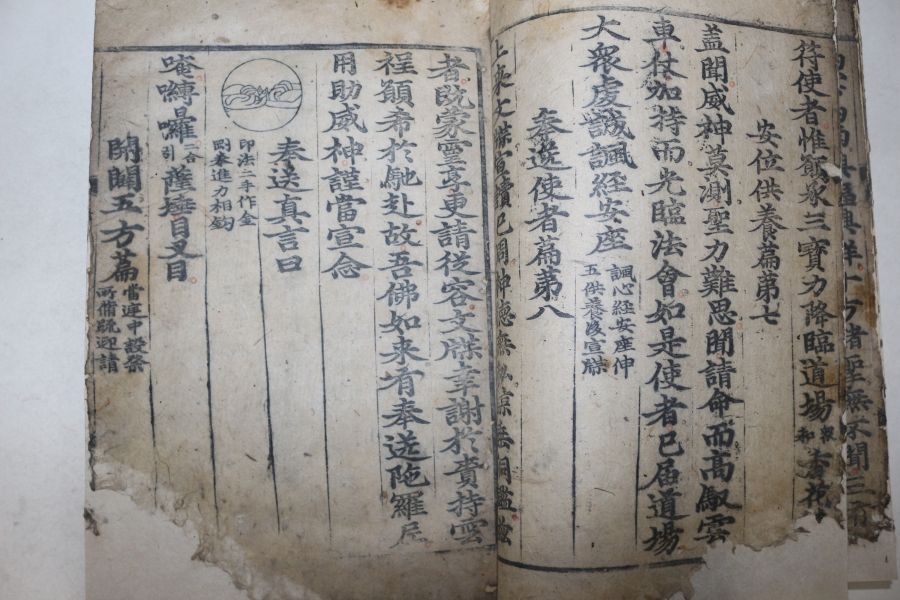 符使者惟願承三寶力降臨道場 衆和 香花
安位供養篇第七
盖聞威神莫測聖力難思聞請命而高馭雲
車仗加持而光臨法會如是使者已屆道場
大衆虔誠諷經安座 諷心經安座伸
五供養後宣牒
奉送使者篇第八
上來文牒宣讀已周神德無私諒無周鑑
者旣蒙靈享更請從容文牒幸謝於賫持雲
程願希於馳赴故吾佛如来有奉送陁羅尼
用助威神謹當宣念
奉送真言曰
印法二手作金
剛拳進力相鈎
唵嚩囉 二合引 薩埵目叉目
開闢五方篇 當迎中設祭
所備䟽迎請